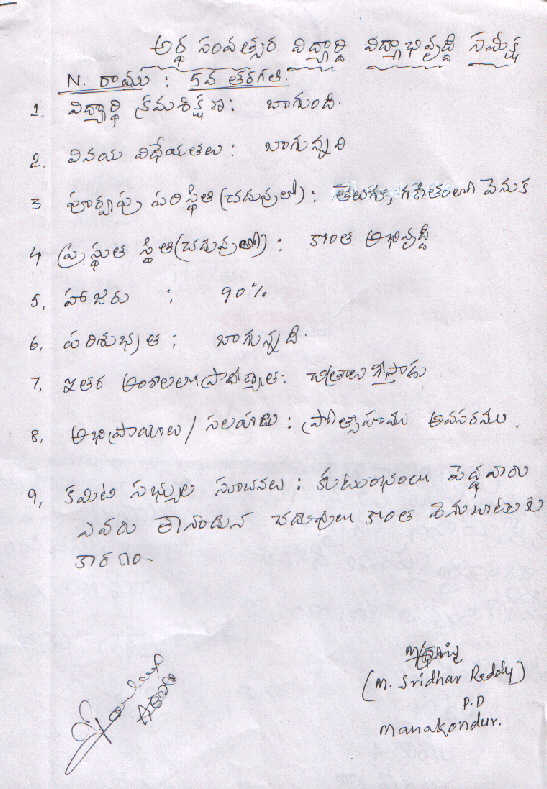 అర్థ సంవత్సర విద్యార్థి విద్యాభివృద్ధి సమీక్ష
N. రాము : 5వ తరగతి.
1. విద్యార్థి క్రమశిక్షణ : బాగుంది.
2. వినయ విధేయతలు : బాగున్నవి
3 పూర్వపు పరిస్థితి (చదువులో) : తెలుగు, గణితంలో వెనుక
4 ప్రస్థుత స్థితి (చదువులో) : కొంత అభివృద్ధి
5. హాజరు : 90%
6. పరిశుభ్రత : బాగున్నది.
7. ఇతర అంశాలలో ప్రావీణ్యత : చిత్రాలు గీస్తాడు
8. అభిప్రాయాలు / సలహాలు : ప్రోత్సాహము అవసరము.
9. కమిటి సభ్యుల సూచనలు : కుటుంభంలు పెద్దవారు
ఎవరు లేనందున చదువులు కొంత వెనుబాటుకు
కారణం.
(M. Sridhar Reddy)
P.D
Manakondur.